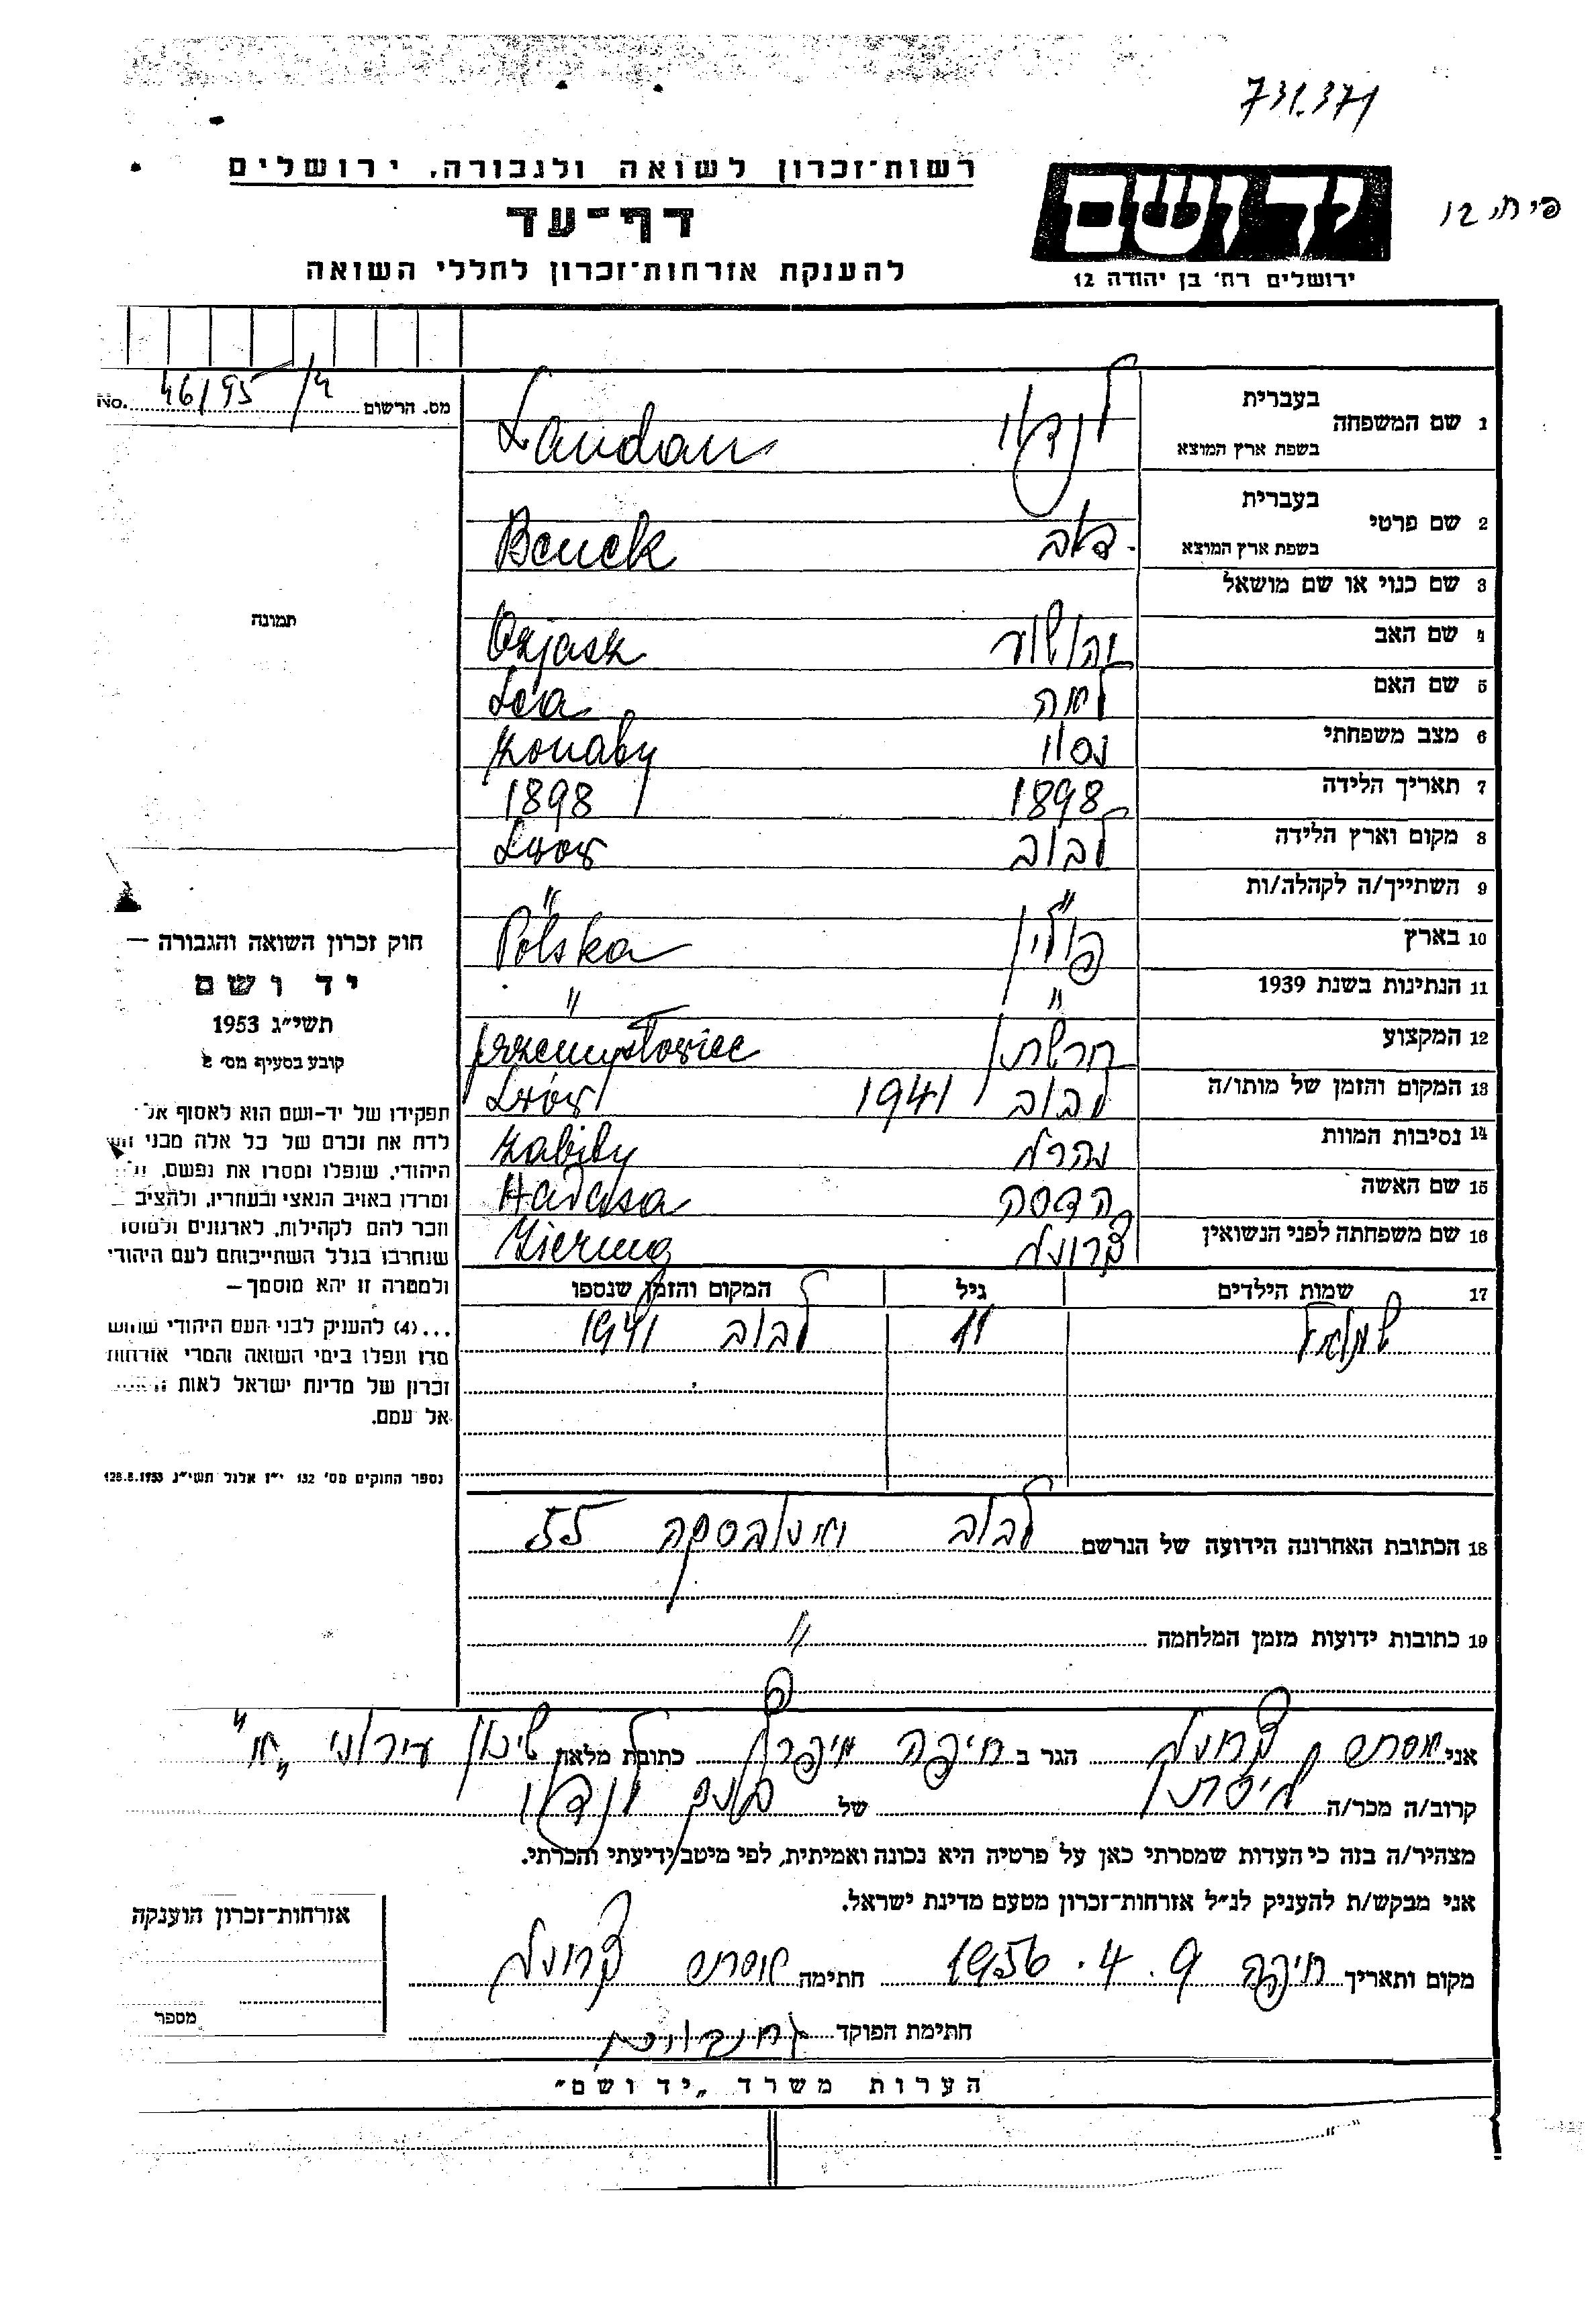 731.371
רשות־זכרון לשואה ולגבורה, ירושלים
יד ושם
דף־עד
ירושלים רח׳ בן יהודה 12
להענקת אזרחות־זכרון לחללי השואה
No. 46/95 מס. הרשום
1 שם המשפחה בעברית לנדאו
בשפת ארץ המוצא Landau
2 שם פרטי בעברית
בשפת ארץ המוצא
3 שם כנוי או שם מושאל
תמונה
4 שם האב יהושוע Ozjasz
5 שם האם לאה Lea
6 מצב משפחתי נשוי Żonaty
7 תאריך הלידה 1898 1898
8 מקום וארץ הלידה לבוב Lwow
9 השתייך/ה לקהלה/ות " "
10 בארץ פולין Polska
11 הנתינות בשנת 1939 " "
12 המקצוע חרשתן przemysłowiec
13 המקום והזמן של מותו/ה לבוב 1941 Lwów
14 נסיבות המוות נהרג Zabity
15 שם האשה הדסה Hadasa
16 שם משפחתה לפני הנשואין
17 שמות הילדים גיל המקום והזמן שנספו
שמואל 11 לבוב 1941
חוק זכרון השואה והגבורה —
יד ושם
תשי״ג 1953
קובע בסעיף מס׳ 2
תפקידו של יד־ושם הוא לאסוף אל
לדת את זכרם של כל אלה מבני
היהודי, שנפלו ומסרו את נפשם,
ומרדו באויב הנאצי ובעוזריו, ולהציב
וזכר להם לקהילות, לארגונים ולמוסד
שנחרבו בגלל השתייכותם לעם היהודי
ולמטרה זו יהא מוסמך—
...(4) להעניק לבני העם היהודי
מדו ונפלו בימי השואה והמרי אזרחות
זכרון של מדינת ישראל לאות
אל עמם.
נספר החוקים מס׳ 132 י״ז אלול תשי״ג 28.8.1953
18 הכתובת האחרונה הידועה של הנרשם לבוב 55
19 כתובות ידועות מזמן המלחמה "
אני הגר ב חיפה כתובת מלאה שיכון עירוני
קרוב/ה מכר/ה גיסתו של לנדאו
מצהיר/ה בזה כי העדות שמסרתי כאן על פרטיה היא נכונה ואמיתית, לפי מיטב ידיעתי והכרתי.
אני מבקש/ת להעניק לנ״ל אזרחות־זכרון מטעם מדינת ישראל.
אזרחות־זכרון הוענקה
מקום ותאריך חיפה 9.4.1956 חתימה
מספר
חתימת הפוקד
הערות משרד „יד ושם״